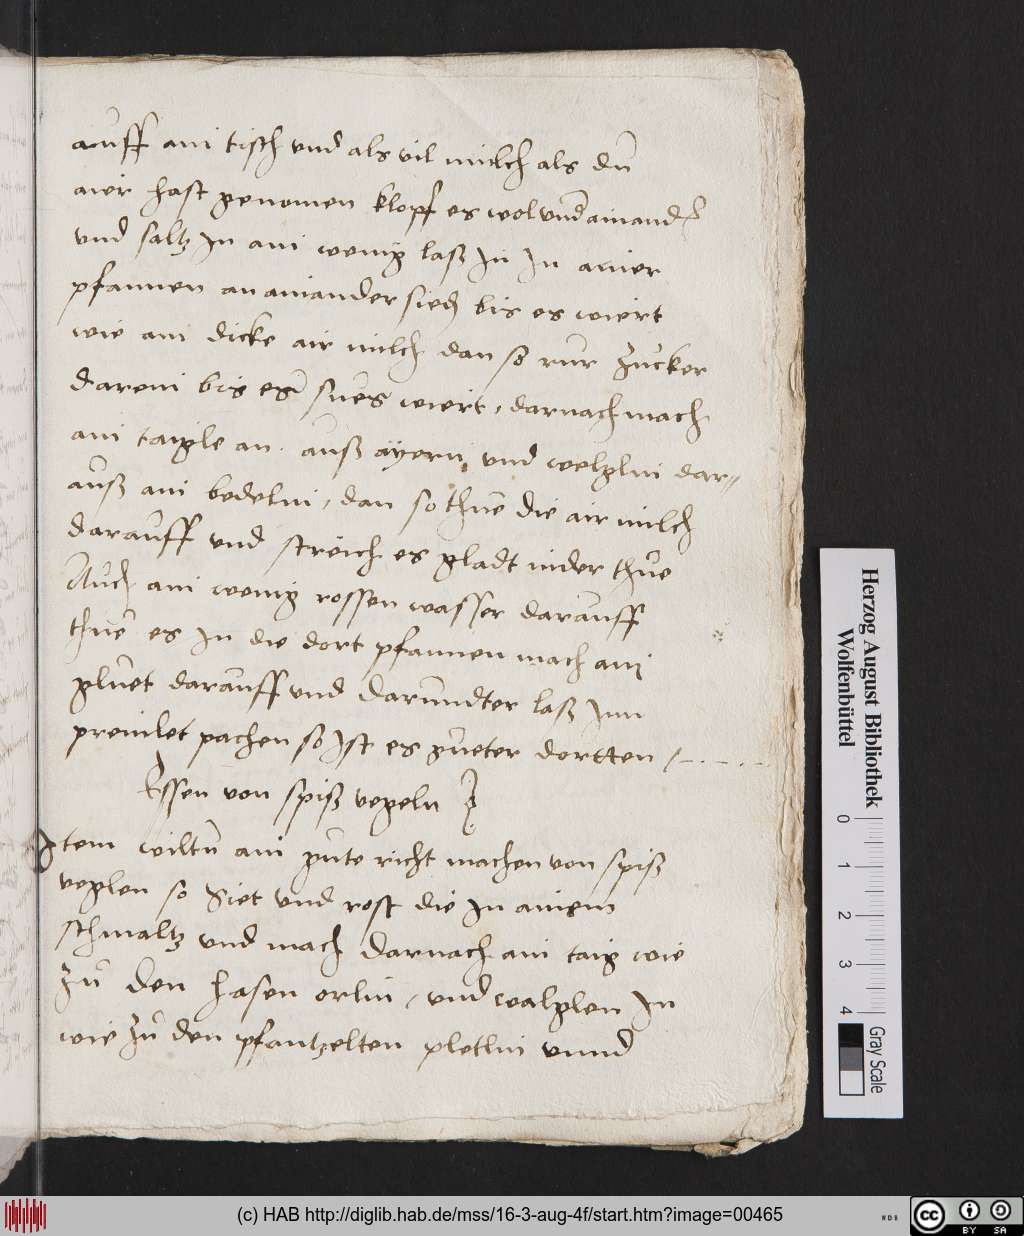 auff ain tisch vnd als vil milch als du
aier hast genomen klopf es wol vnd ainander
vnd saltz In ain wenig laß In In ainer
pfannen an ainander sieden bis es wiert
wie ain dicke air milch dan so rur zucker
darein bis es sues wiert, darnach mach
ain taigle an. auß ayern, vnd welglin dar=
auß ain bedelin, dan so thue die air milch
darauff vnd streich es gladt nider thue
Auch ain wenig rossen wasser darauff
thue es In die dort pfannen mach ain
gluet darauff vnd darundter laß Inn
preinlet pachen so Ist es gueter dortten
Essen von spiß vegeln
Item wiltu ain gute richt machen von spiß
veglen so Siet vnd rost die In ainem
schmaltz vnd mach darnach ain taig wie
zu den hasen orlin, vnd walglen In
wie zu den pfantzelten pletlin vnnd
Herzog August Bibliothek
Wolfenbüttel
0 1 2 3 4
Gray Scale
(c) HAB http://diglib.hab.de/mss/16-3-aug-4f/start.htm?image=00465
WDB
cc BY SA